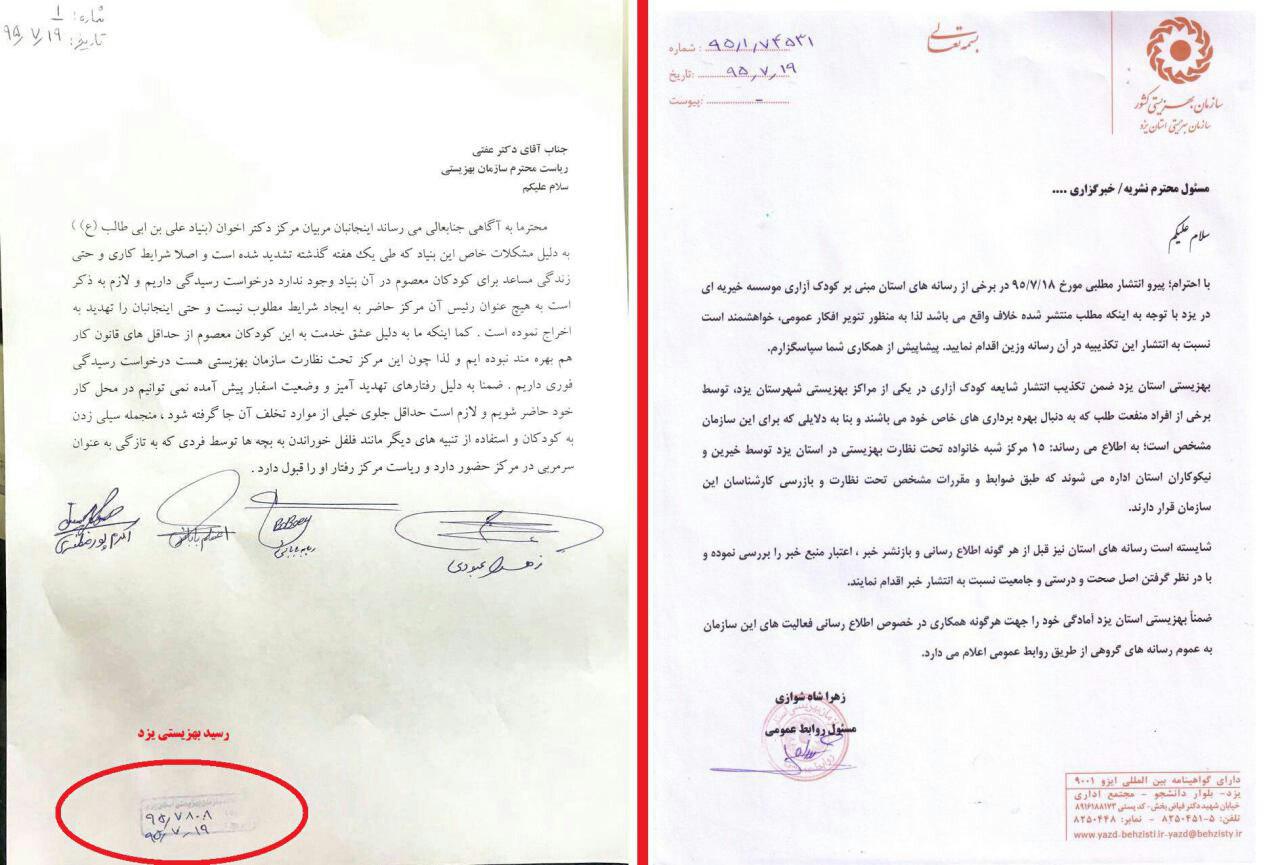 شماره: ۱
تاریخ: ۹۵/۷/۱۹
جناب آقای دکتر عفتی
ریاست محترم سازمان بهزیستی
سلام علیکم
محترما به آگاهی جنابعالی می رساند اینجانبان مربیان مرکز دکتر اخوان (بنیاد علی بن ابی طالب (ع) )
به دلیل مشکلات خاص این بنیاد که طی یک هفته گذشته تشدید شده است و اصلا شرایط کاری و حتی
زندگی مساعد برای کودکان معصوم در آن بنیاد وجود ندارد درخواست رسیدگی داریم و لازم به ذکر
است به هیچ عنوان رئیس آن مرکز حاضر به ایجاد شرایط مطلوب نیست و حتی اینجانبان را تهدید به
اخراج نموده است . کما اینکه ما به دلیل عشق خدمت به این کودکان معصوم از حداقل های قانون کار
هم بهره مند نبوده ایم و لذا چون این مرکز تحت نظارت سازمان بهزیستی هست درخواست رسیدگی
فوری داریم . ضمنا به دلیل رفتارهای تهدید آمیز و وضعیت اسفبار پیش آمده نمی توانیم در محل کار
خود حاضر شویم و لازم است حداقل جلوی خیلی از موارد تخلف آن جا گرفته شود ، منجمله سیلی زدن
به کودکان و استفاده از تنبیه های دیگر مانند فلفل خوراندن به بچه ها توسط فردی که به تازگی به عنوان
سرمربی در مرکز حضور دارد و ریاست مرکز رفتار او را قبول دارد .
زهرا عبودی
رسید بهزیستی یزد
۹۵/۷۸۰۸
۹۵/۷/۱۹
بسمه تعالی
سازمان بهزیستی کشور
سازمان بهزیستی استان یزد
شماره : ۹۵/۱/۷۴۵۳۱
تاریخ: ۹۵/۷/۱۹
پیوست: -
مسئول محترم نشریه/ خبرگزاری ....
سلام علیکم
با احترام؛ پیرو انتشار مطلبی مورخ ۹۵/۷/۱۸ در برخی از رسانه های استان مبنی بر کودک آزاری موسسه خیریه ای
در یزد با توجه به اینکه مطلب منتشر شده خلاف واقع می باشد لذا به منظور تنویر افکار عمومی، خواهشمند است
نسبت به انتشار این تکذیبیه در آن رسانه وزین اقدام نمایید. پیشاپیش از همکاری شما سپاسگزارم.
بهزیستی استان یزد ضمن تکذیب انتشار شایعه کودک آزاری در یکی از مراکز بهزیستی شهرستان یزد، توسط
برخی از افراد منفعت طلب که به دنبال بهره برداری های خاص خود می باشند و بنا به دلایلی که برای این سازمان
مشخص است؛ به اطلاع می رساند: ۱۵ مرکز شبه خانواده تحت نظارت بهزیستی در استان یزد توسط خیرین و
نیکوکاران استان اداره می شوند که طبق ضوابط و مقررات مشخص تحت نظارت و بازرسی کارشناسان این
سازمان قرار دارند.
شایسته است رسانه های استان نیز قبل از هر گونه اطلاع رسانی و بازنشر خبر ، اعتبار منبع خبر را بررسی نموده و
با در نظر گرفتن اصل صحت و درستی و جامعیت نسبت به انتشار خبر اقدام نمایند.
ضمناً بهزیستی استان یزد آمادگی خود را جهت هرگونه همکاری در خصوص اطلاع رسانی فعالیت های این سازمان
به عموم رسانه های گروهی از طریق روابط عمومی اعلام می دارد.
زهرا شاه شوازی
مسئول روابط عمومی
دارای گواهینامه بین المللی ایزو ۹۰۰۱
یزد- بلوار دانشجو - مجتمع اداری
خیابان شهید دکتر فیاض بخش - کد پستی ۸۹۱۶۱۸۸۱۷۳
تلفن: ۵-۸۲۵۰۴۵۱ - نمابر: ۸۲۵۰۴۴۸
www.yazd-behzisti.ir-yazd@behzisty.ir